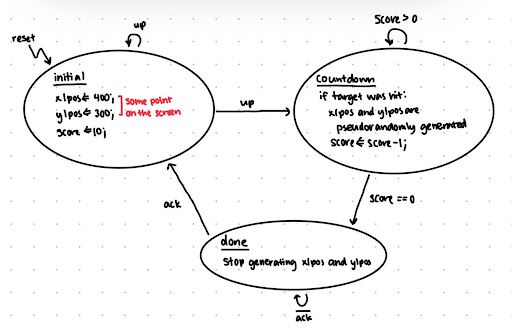 up
reset
initial
x1pos ⇐ 400;
y1pos ⇐ 300;
score ⇐ 10;
some point
on the screen
up
score > 0
Countdown
if target was hit:
x1pos and y1pos are
pseudorandomly generated
score ⇐ score - 1;
ack
score == 0
done
Stop generating x1pos and y1pos
a̅c̅k̅